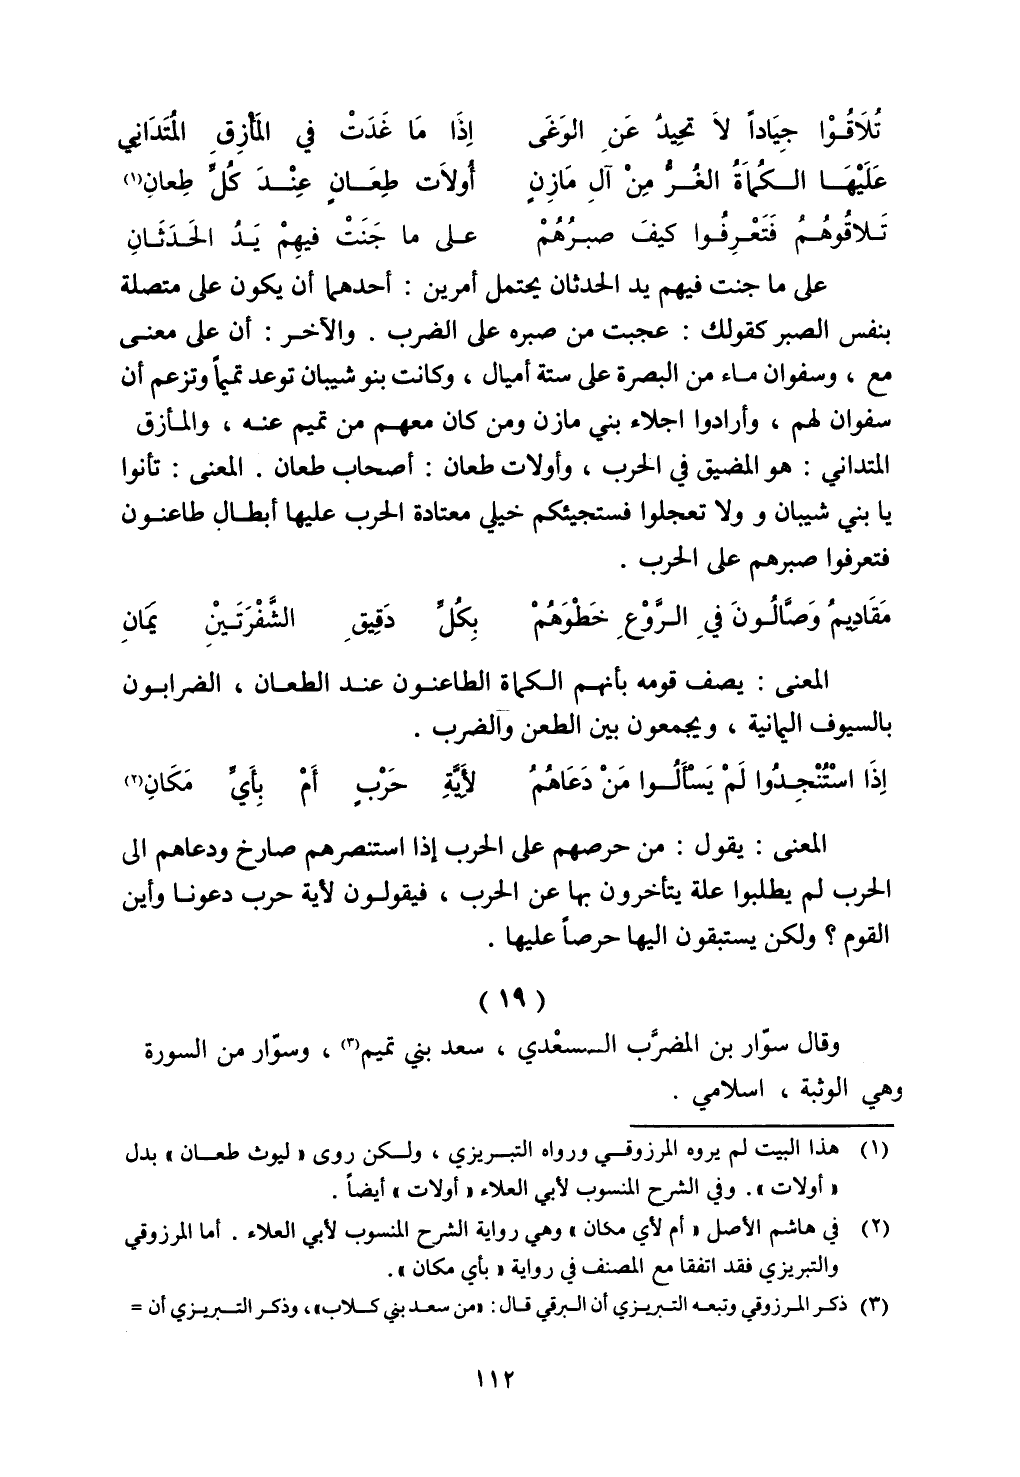 تُلَاقُوْا جِيَاداً لاَ تَحِيدُ عَنِ الوَغَى إِذَا مَا غَدَتْ في المَأْزِقِ المُتَدَانِي
عَلَيْهَا الكُمَاةُ الغُرُّ مِنْ آلِ مَازِنٍ أُولَات طِعَانٍ عِنْدَ كُلِّ طِعانِ(١)
تَلاقُوهُمُ فَتَعْرِفُوا كيفَ صبرُهُمْ على ما جَنَتْ فيهِمْ يَدُ الحَدَثَانِ
على ما جنت فيهم يد الحدثان يحتمل أمرين : أحدهما أن يكون على متصلة
بنفس الصبر كقولك : عجبت من صبره على الضرب . والآخر : أن على معنى
مع ، وسفوان ماء من البصرة على ستة أميال ، وكانت بنو شيبان توعد تميماً وتزعم أن
سفوان لهم ، وأرادوا اجلاء بني مازن ومن كان معهم من تميم عنه ، والمأزق
المتداني : هو المضيق في الحرب ، وأولات طعان : أصحاب طعان . المعنى : تأنوا
يا بني شيبان و ولا تعجلوا فستجيئكم خيلي معتادة الحرب عليها أبطال طاعنون
فتعرفوا صبرهم على الحرب .
مَقَادِيمُ وَصَّالُونَ فيِ الرَّوْعِ خَطْوَهُمْ بِكُلِّ دَقِيقِ الشَّفْرَتَيْنِ يَمَانِ
المعنى : يصف قومه بأنهم الكماة الطاعنون عند الطعان ، الضرابون
بالسيوف اليمانية ، ويجمعون بين الطعن والضرب .
إِذَا اسْتُنْجِدُوا لَمْ يَسْأَلُوا مَنْ دَعَاهُمُ لأَيَّةِ حَرْبٍ أَمْ بِأَيِّ مَكَانِ(٢)
المعنى : يقول : من حرصهم على الحرب إذا استنصرهم صارخ ودعاهم الى
الحرب لم يطلبوا علة يتأخرون بها عن الحرب ، فيقولون لأية حرب دعونا وأين
القوم ؟ ولكن يستبقون اليها حرصاً عليها .
( ١٩ )
وقال سوّار بن المضرَّب السعْدي ، سعد بني تميم(٣) ، وسوّار من السورة
وهي الوثبة ، اسلامي .
(١) هذا البيت لم يروه المرزوقي ورواه التبريزي ، ولكن روى « ليوث طعان » بدل
« أولات ». وفي الشرح المنسوب لأبي العلاء « أولات » أيضاً .
(٢) في هاشم الأصل « أم لأي مكان » وهي رواية الشرح المنسوب لأبي العلاء . أما المرزوقي
والتبريزي فقد اتفقا مع المصنف في رواية « بأي مكان ».
(٣) ذكر المرزوقي وتبعه التبريزي أن البرقي قال : «من سعد بني كلاب»، وذكر التبريزي أن =
١١٢